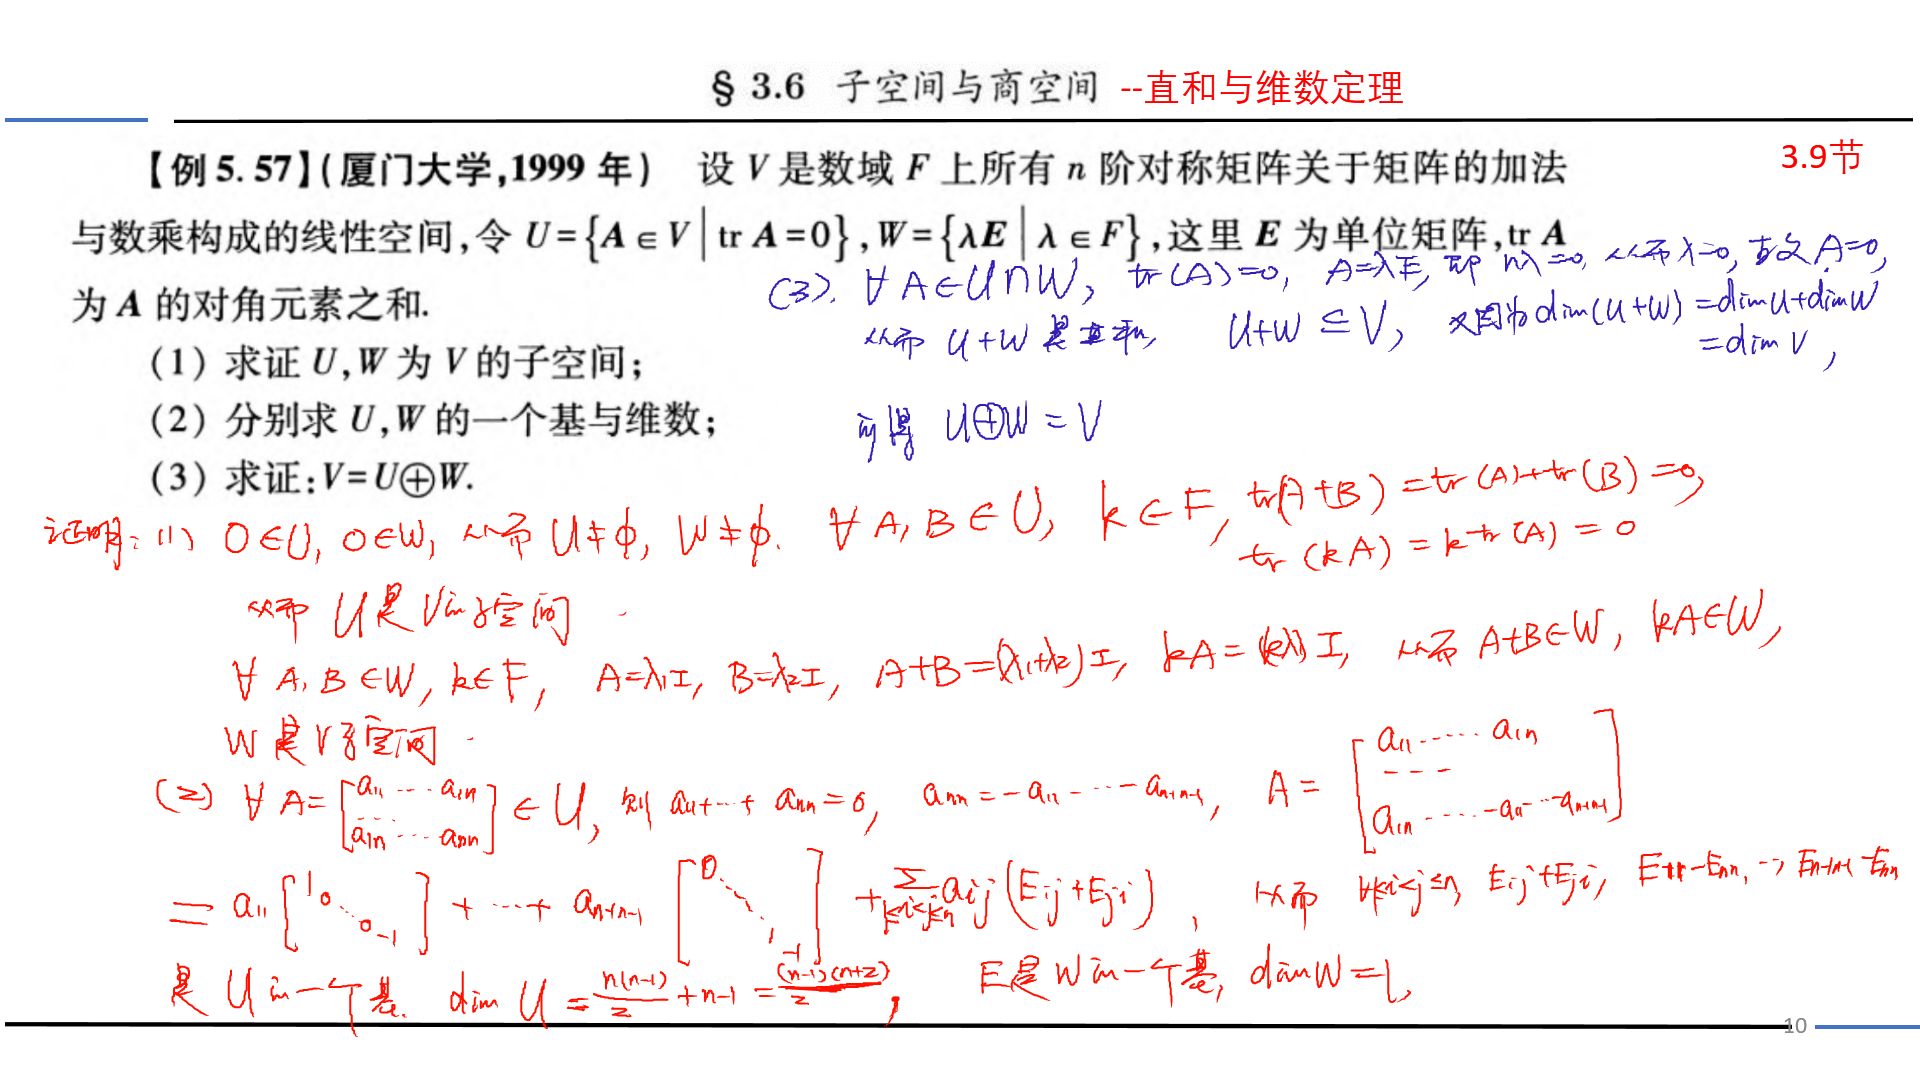 § 3.6 子空间与商空间 --直和与维数定理
3.9节
【例 5.57】(厦门大学,1999 年) 设 V 是数域 F 上所有 n 阶对称矩阵关于矩阵的加法
与数乘构成的线性空间,令 U={A∈V|tr A=0},W={λE|λ∈F},这里 E 为单位矩阵,tr A
为 A 的对角元素之和.
(1) 求证 U,W 为 V 的子空间;
(2) 分别求 U,W 的一个基与维数;
(3) 求证:V=U⊕W.
(3). ∀ A∈U∩W, tr(A)=0, A=λE, 即 nλ=0, 从而 λ=0, 故 A=0,
从而 U+W 是直和, U+W ⊆ V, 又因为 dim(U+W)=dimU+dimW
=dim V,
可得 U⊕W = V
证明: (1) 0∈U, 0∈W, 从而 U≠φ, W≠φ. ∀ A, B∈U, k∈F, tr(A+B)=tr(A)+tr(B)=0,
tr(kA)=k tr(A)=0
从而 U是V的子空间.
∀ A, B∈W, k∈F, A=λ₁I, B=λ₂I, A+B=(λ₁+λ₂)I, kA=(kλ₁)I, 从而 A+B∈W, kA∈W,
W 是 V 子空间.
(2) ∀ A=[a₁₁ ··· a₁ₙ ··· a₁ₙ ··· aₙₙ] ∈ U, 则 a₁₁+···+aₙₙ=0, aₙₙ=-a₁₁-···-aₙ₋₁ₙ₋₁, A=[a₁₁ ····· a₁ₙ --- a₁ₙ ···· -a₁₁-···-aₙ₋₁ₙ₋₁]
= a₁₁[1 0 ··· 0 -1] + ··· + aₙ₋₁ₙ₋₁[0 ··· 1 -1] + ∑1≤i<j≤n aij(Eij+Eji), 从而 ∀1≤i<j≤n, Eij+Eji, E₁₁-Eₙₙ, ···, Eₙ₋₁ₙ₋₁-Eₙₙ
是 U 的一个基. dim U = n(n-1)/2 + n-1 = (n-1)(n+2)/2, E是W的一个基, dimW=1,
10